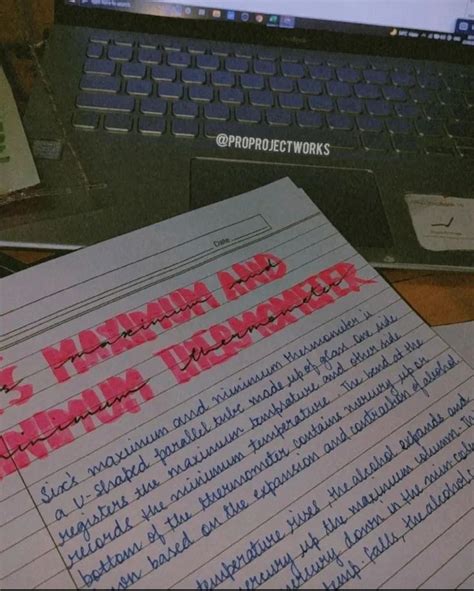 @PROPROJECTWORKS
Date
'S MAXIMUM AND
maximum and
NIMUM THERMOMETER
minimum thermometer
Six's maximum and minimum thermometer is
a U-shaped parallel tube made up of glass one side
registers the maximum temprature and other side
records the minimum temperature. The bend at the
bottom of the thermometer contains mercury up or
down based on the expansion and contraction of alcohol.
temperature rises, the alcohol expands and
mercury up the maximum column. In
mercury down in the min
temp. falls, the alcohol